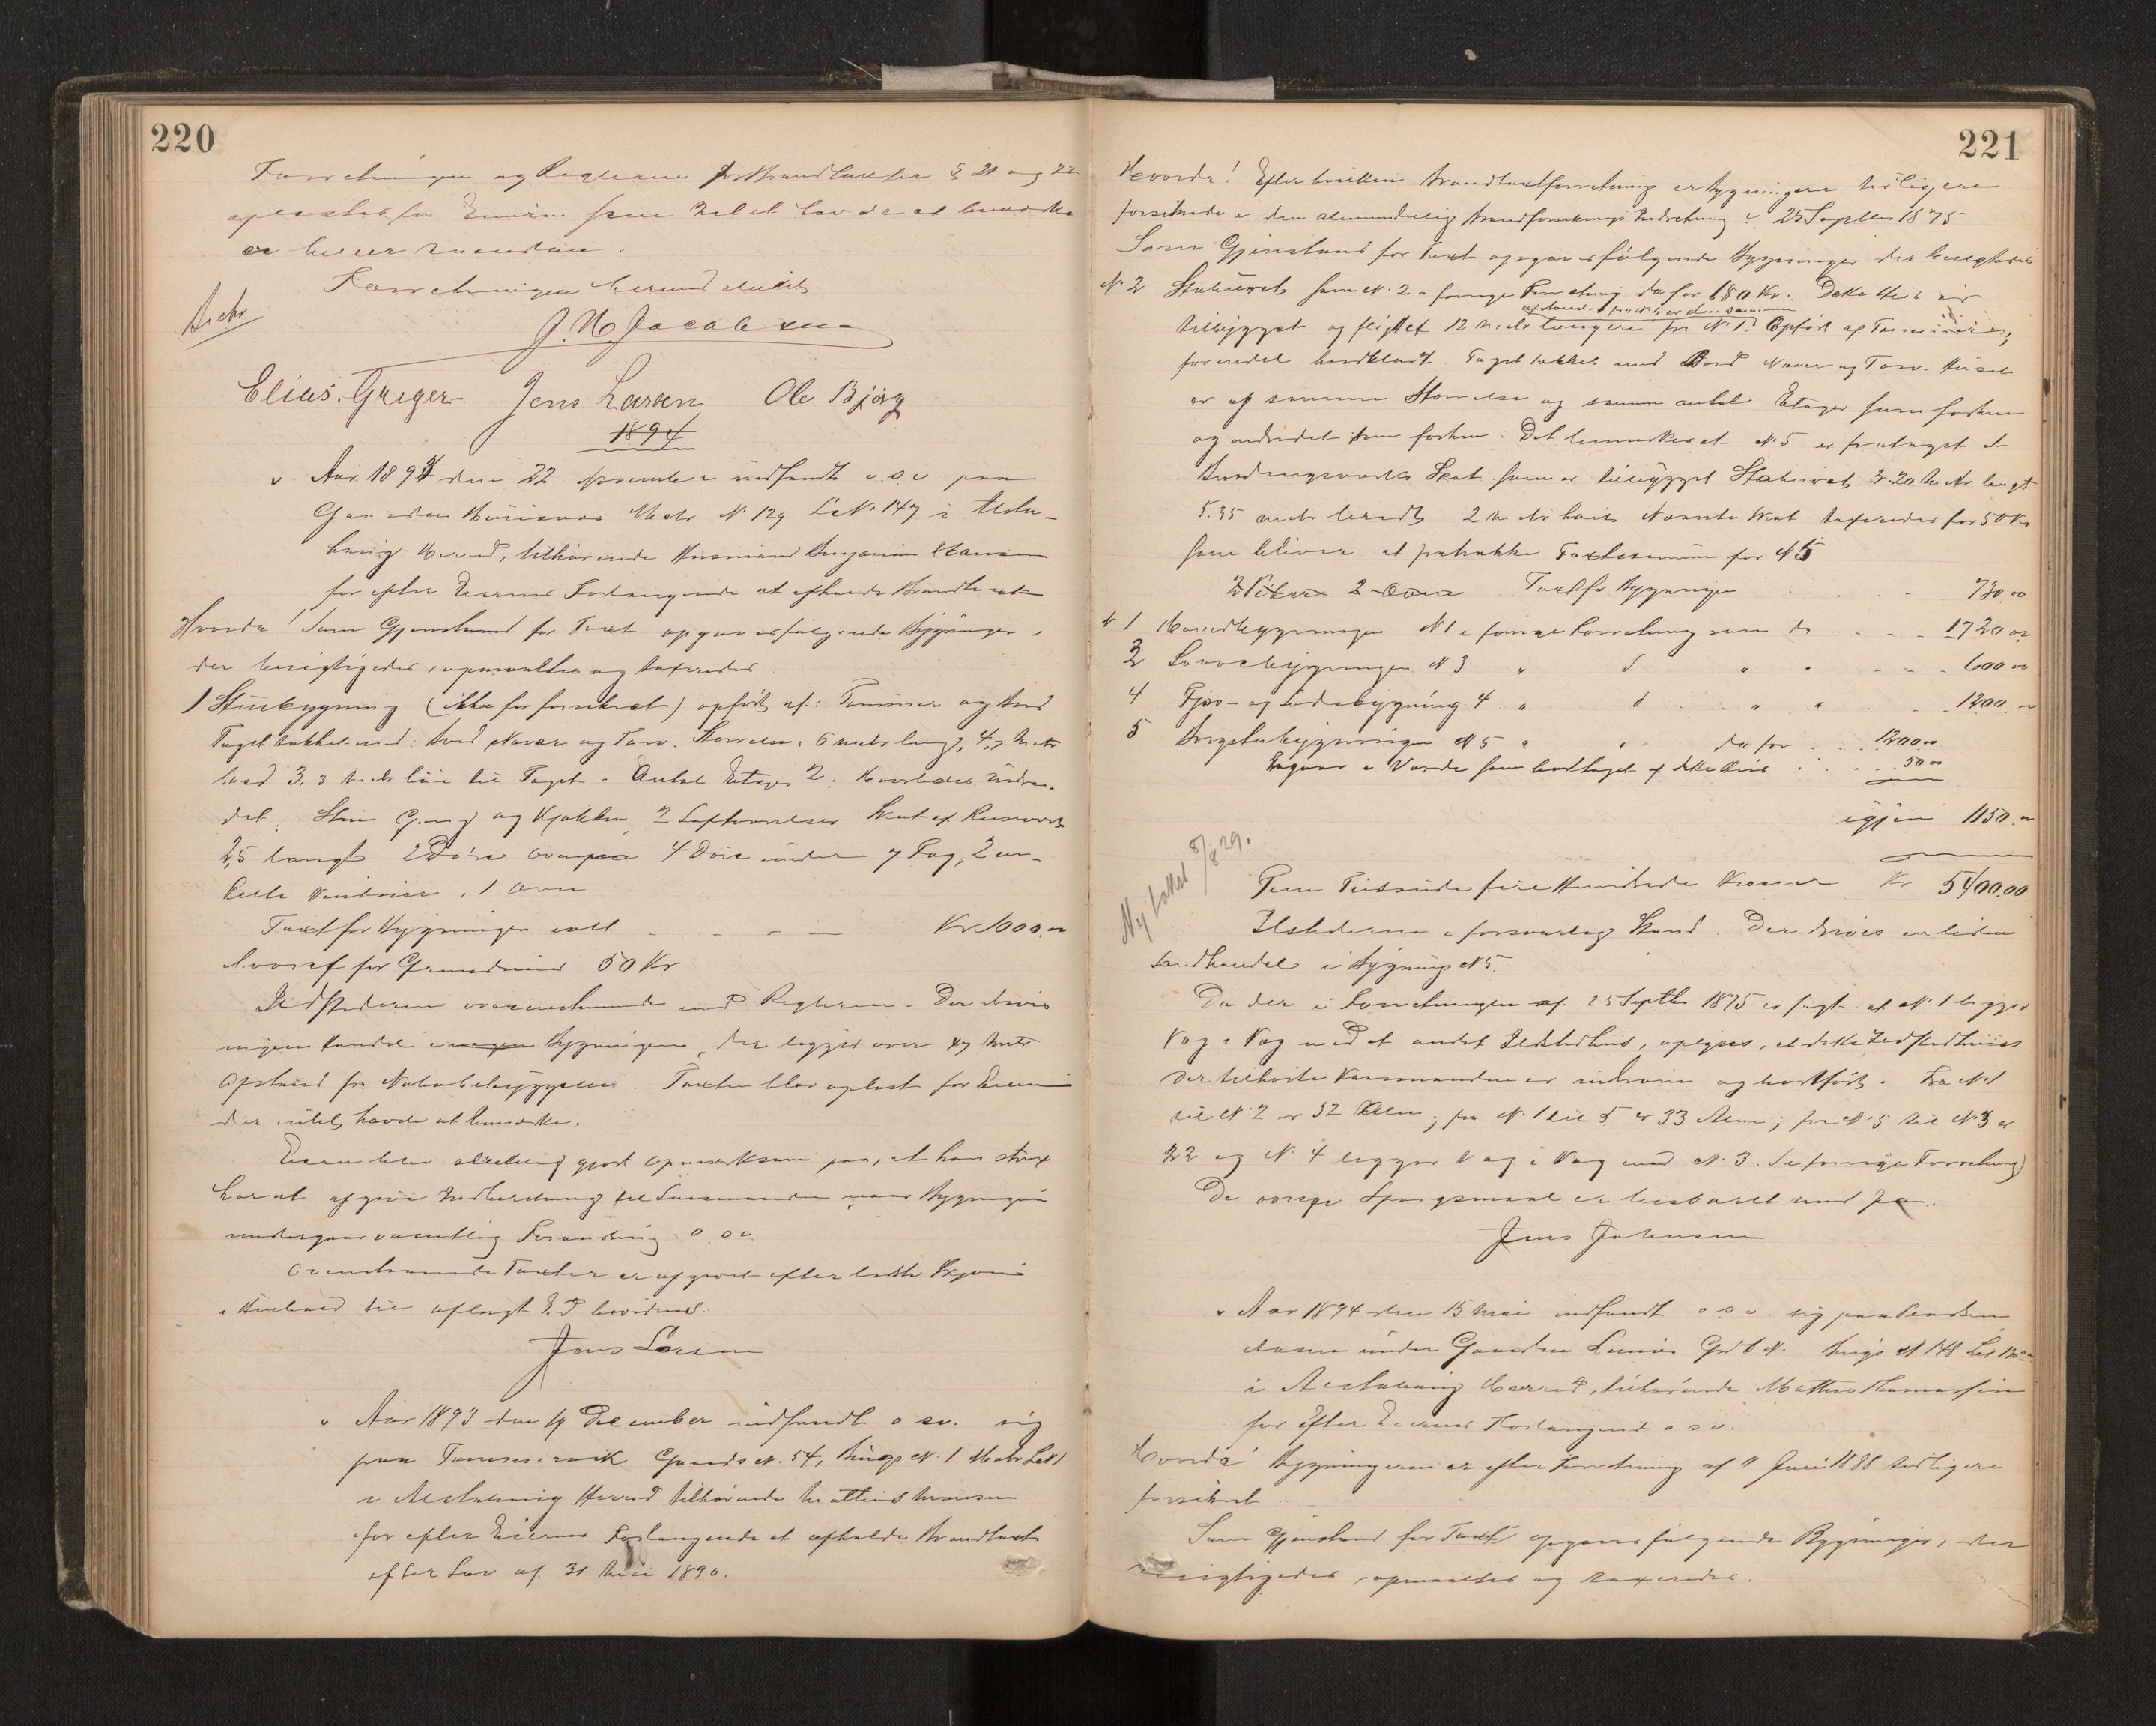 220
Forretningen og Reglerne § 21 og 22
oplæstes for Eieren som Intet havde at bemærke

Forretningen hermed sluttet
J. N. Jacobsen
Elias. Greger Jens Larsen Ole Bjørg
1894
Aar 1894 den 22 November indfandt o. s. v. paa
Gaarden Matr N. 129 LN. 147 i Alsta-
haug Herred, tilhørende Husmand Benjamin Hansen
for efter Eierens Forlangende at afholde Brandtaxt
Hvorda! Som Gjenstand for Taxt opgaves følgende Bygninger,
der besigtigedes, opmaaltes og taxeredes
1 Stuebygning (ikke før forsikret) opført af: Tømmer og Bord
Taget tækket med: Bord Næver og Torv. Størrelse: 6 meter lang, 4,7 Meter
bred 3,3 Meter høi til Taget. Antal Etager 2: Hvorledes indre-
det: Stue Gang og Kjøkken, 2 Loftsværelser Skut af
2,5 langt 2 Døre 4 Døre inden 7 Fag, 2 en-
kelte Vinduer, 1 Ovn
Taxt for Bygningen ialt Kr. 1000.00
hvoraf for Grundmur 50 Kr
Ildstederne overensstemmende med Reglerne. Der drives
ingen Handel i Bygningen, der ligger over 47 Meter
Afstand fra Nabobebyggelse. Taxten blev oplæst for Eieren
der intet havde at bemærke.
Eieren blev gjort opmærksom paa, at han strax
har at afgive Indberetning til Lensmanden naar Bygningen
undergaar væsentlig Forandring o. s. v.
Ovenstaaende Taxter er afgivet efter bedste Skjøn
i Henhold til aflagt Ed
Jens Larsen
Aar 1893 den 19 December indfandt o. s. v. sig
paa Gaards N. 54, Brugs N. 1 Matr LN 1
i Alstahaug Herred tilhørende Mattias Hansen
for efter Eierens Forlangende at afholde Brandtaxt
efter Lov af 31 Mai 1890.
221
Hvorda! Efter hvilken Brandtaxtforretning er Bygningerne tidligere
forsikrede i den almindelige Brandforsikrings Indretning? 25 Septbr 1875
Som Gjenstand for Taxt opgaves følgende Bygninger der besigtedes
N. 2 Stabburet som N. 2 i forrige Forretning da for 680 Kr. Dette Hus er
afstand fra N. 5 er den samme
tilbygget og flyttet 12 Meter længere fra N. 1. Opført af Tømmer,
forendel bordklædt. Taget tækket med Bord Næver og Torv. Huset
er af samme Størrelse og samme antal Etager som forhen
og indredet som forhen. Det bemærkes at N. 5 er frataget et
Bindingsværks Skut som er tilbygget Stabburet 3.20 Meter langt
5.35 meter bredt 2 Meter høit Nævnte Skut taxeredes for 50 Kr
som bliver at fratrække Taxtsummen for N. 5
Taxt for Bygningen 730.00
N. 1 Hovedbygningen N. 1 i forrige Forretning som da 1720.00
3 Laavebygningen N. 3 " d " " 600.00
4 Fjøs- og Ladebygning 4 " d " " 1200.00
5 Borgstubygningen N. 5 " " da for 1200.00
fragaar i Værdi som borttaget af dette Hus 50.00
igjen 1150.00
Ny takst 5/8 29.
Fem Tusinde fire Hundrede Kroner Kr 5400.00
Ildstederne i forsvarlig Stand. Der drives en liden
Landhandel i Bygning N. 5.
Da der i Forretningen af 25 Septbr 1875 er sagt at N. 1 ligger
Væg i Væg med et andet Ildstedhus, oplyses, at dette Ildstedhus
der tilhørte er nedrevet og bortført. Fra N. 1
til N. 2 er 32 Alen; fra N. 1 til 5 er 33 Alen; fra N. 5 til N. 3 er
22 og N. 4 ligger Væg i Væg med N. 3. Se forrige Forretning)
De øvrige Spørgsmaal er besvaret med Ja.
Jens Johansen
Aar 1894 den 15 Mai indfandt o. s. v. sig paa Pladsen
under Gaarden Grdb N. Brugs N. 148
i Alstahaug Herred, tilhørende
for efter Eierens Forlangende o. s. v.
Hvorda! Bygningerne er efter Forretning af 11 Juni 1888 tidligere
forsikret.
Som Gjenstand for Taxt opgaves følgende Bygninger, der
besigtigedes, opmaaltes og taxeredes.